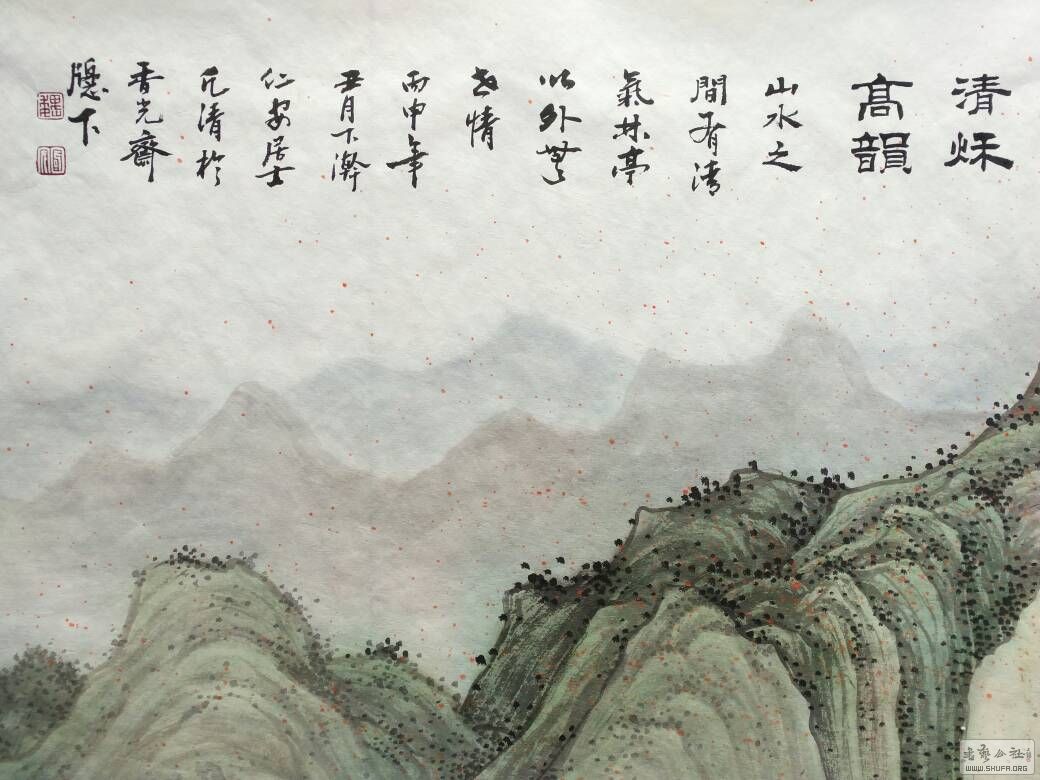 清秌
髙韻
山水之
間有清
氣林亭
以外無
世情
丙申年
丑月下澣
仁安居士
元清於
香光齋
牕下
書藝公社
WWW.SHUFA.ORG